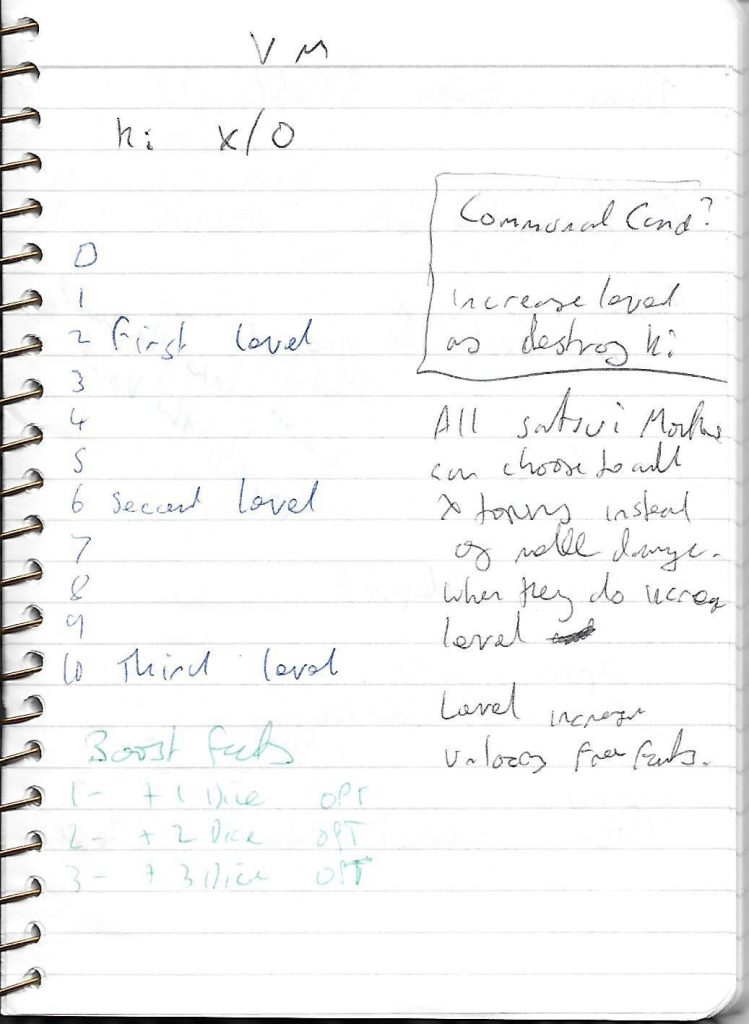 VM
Ki X/O
Communal Card?
Increase level
as destroy Ki
0
1
2 First level
3
4
5
6 Second level
7
8
9
10 Third level
All satsui
can choose to add
X tokens instead
of damage.
When they do increase
level
Level increase
unlocks free feats.
Boost feats
1 - +1 Dice OPT
2 - +2 Dice OPT
3 - +3 Dice OPT